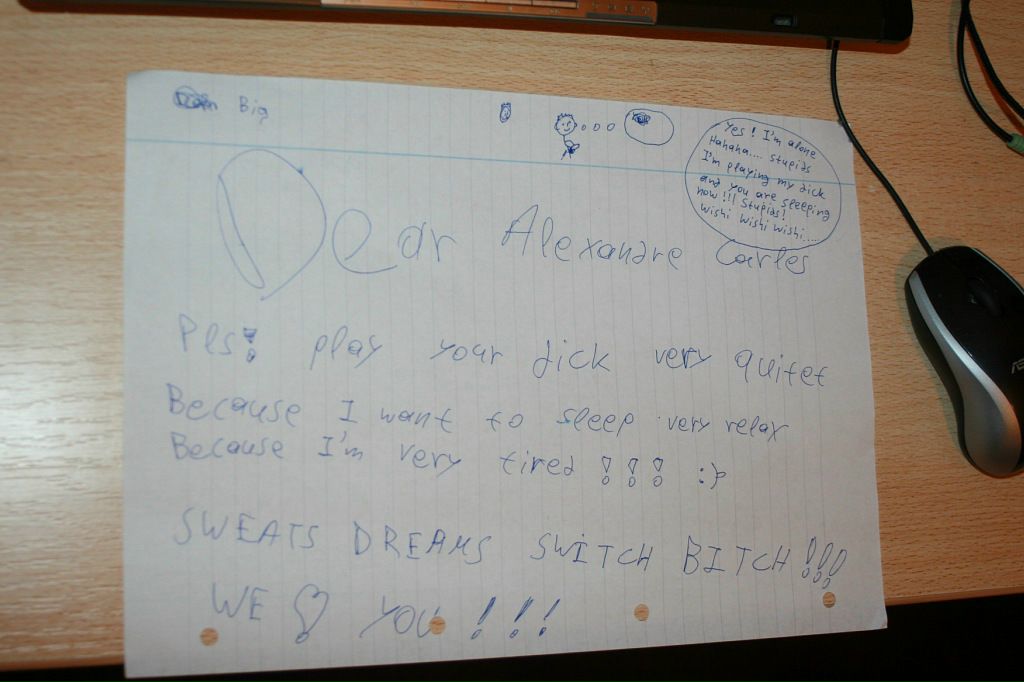 Big
Yes! I'm alone
Hahaha.... stupids
I'm playing my dick
and you are sleeping
now!!! Stupids!
Wishi Wishi Wishi....
Dear Alexandre Carles
Pls! play your dick very quitet
Because I want to sleep very relax
Because I'm very tired !!! :P
SWEATS DREAMS SWITCH BITCH!!!
WE ♡ YOU !!!